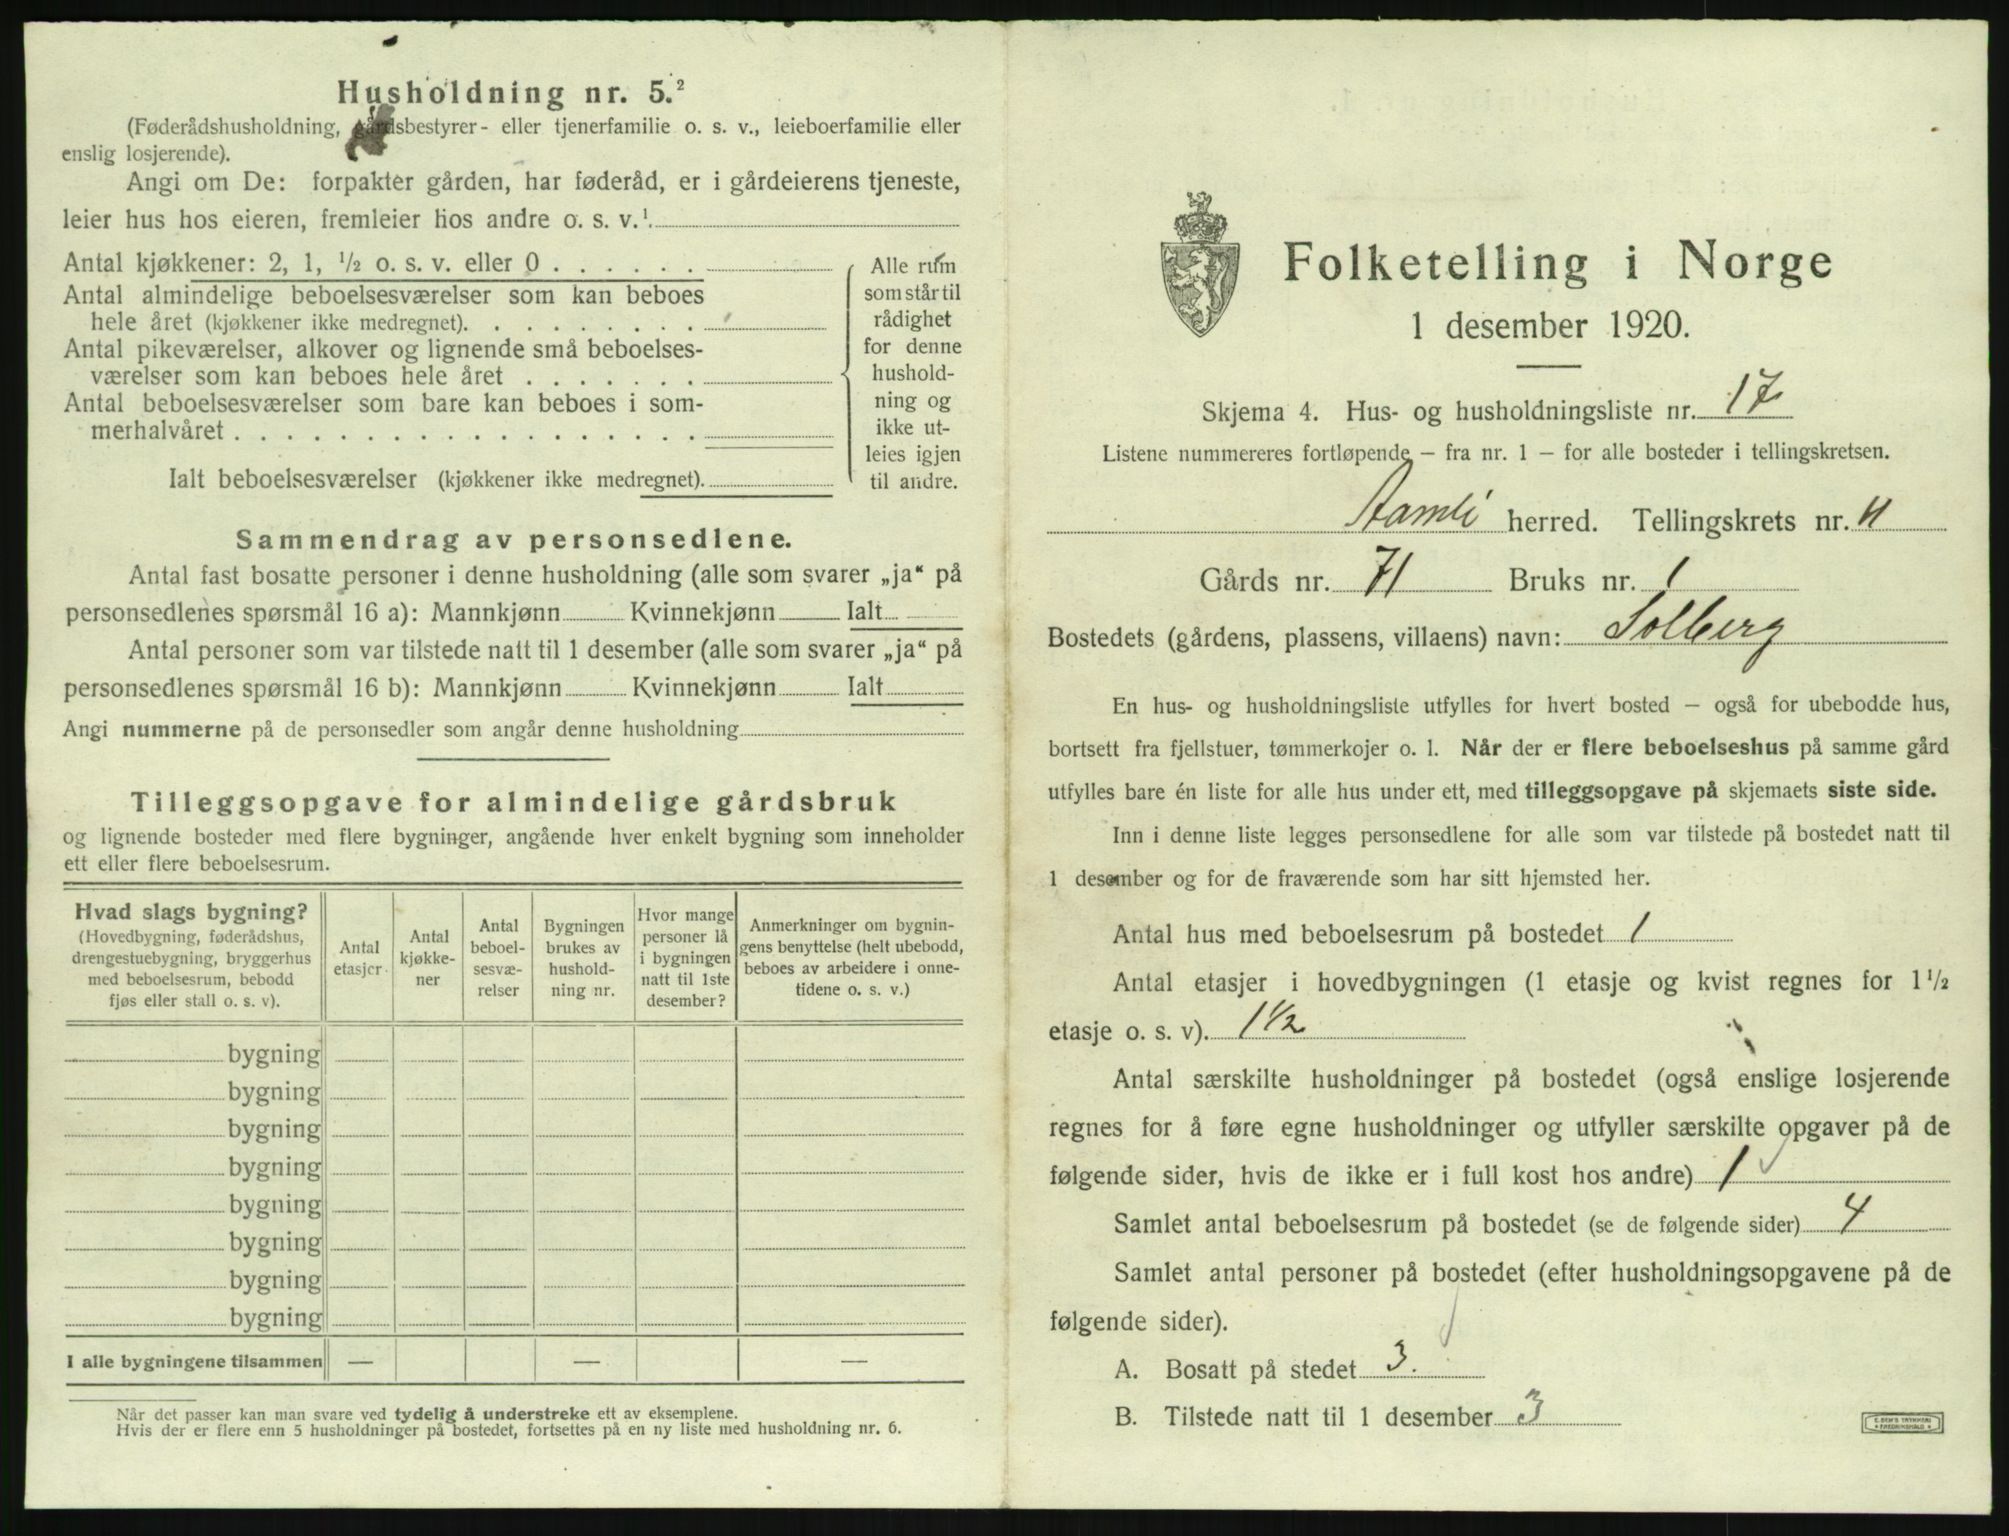 Husholdning nr. 5.²
(Føderådshusholdning, gårdsbestyrer- eller tjenerfamilie o. s. v., leieboerfamilie eller
enslig losjerende).
Angi om De: forpakter gården, har føderåd, er i gårdeierens tjeneste,
leier hus hos eieren, fremleier hos andre o. s. v.¹
Antal kjøkkener: 2, 1, ½ o. s. v. eller 0 . . . . . .
Antal almindelige beboelsesværelser som kan beboes
hele året (kjøkkener ikke medregnet). . . . . . . . .
Antal pikeværelser, alkover og lignende små beboelses-
værelser som kan beboes hele året . . . . . . .
Antal beboelsesværelser som bare kan beboes i som-
merhalvåret . . . . . . . . . . . . . . . . . .
Ialt beboelsesværelser (kjøkkener ikke medregnet).
Alle rum
som står til
rådighet
for denne
hushold-
ning og
ikke ut-
leies igjen
til andre.
Sammendrag av personsedlene.
Antal fast bosatte personer i denne husholdning (alle som svarer „ja“ på
personsedlenes spørsmål 16 a): Mannkjønn Kvinnekjønn Ialt
Antal personer som var tilstede natt til 1 desember (alle som svarer „ja“ på
personsedlenes spørsmål 16 b): Mannkjønn Kvinnekjønn Ialt
Angi nummerne på de personsedler som angår denne husholdning
Tilleggsopgave for almindelige gårdsbruk
og lignende bosteder med flere bygninger, angående hver enkelt bygning som inneholder
ett eller flere beboelsesrum.
Hvad slags bygning?
(Hovedbygning, føderådshus,
drengestuebygning, bryggerhus
med beboelsesrum, bebodd
fjøs eller stall o. s. v).
Antal
etasjer
Antal
kjøkke-
ner
Antal
beboel-
sesvæ-
relser
Bygningen
brukes av
hushold-
ning nr.
Hvor mange
personer lå
i bygningen
natt til 1ste
desember?
Anmerkninger om bygnin-
gens benyttelse (helt ubebodd,
beboes av arbeidere i onne-
tidene o. s. v.)
bygning
bygning
bygning
bygning
bygning
bygning
bygning
bygning
I alle bygningene tilsammen — — —
Når det passer kan man svare ved tydelig å understreke ett av eksemplene.
Hvis der er flere enn 5 husholdninger på bostedet, fortsettes på en ny liste med husholdning nr. 6.
Folketelling i Norge
1 desember 1920.
Skjema 4. Hus- og husholdningsliste nr. 17
Listene nummereres fortløpende – fra nr. 1 – for alle bosteder i tellingskretsen.
Aamli herred. Tellingskrets nr. 11
Gårds nr. 71 Bruks nr. 1
Bostedets (gårdens, plassens, villaens) navn: Solberg
En hus- og husholdningsliste utfylles for hvert bosted – også for ubebodde hus,
bortsett fra fjellstuer, tømmerkojer o. l. Når der er flere beboelseshus på samme gård
utfylles bare én liste for alle hus under ett, med tilleggsopgave på skjemaets siste side.
Inn i denne liste legges personsedlene for alle som var tilstede på bostedet natt til
1 desember og for de fraværende som har sitt hjemsted her.
Antal hus med beboelsesrum på bostedet 1
Antal etasjer i hovedbygningen (1 etasje og kvist regnes for 1½
etasje o. s. v). 1½
Antal særskilte husholdninger på bostedet (også enslige losjerende
regnes for å føre egne husholdninger og utfyller særskilte opgaver på de
følgende sider, hvis de ikke er i full kost hos andre) 1
Samlet antal beboelsesrum på bostedet (se de følgende sider) 4
Samlet antal personer på bostedet (efter husholdningsopgavene på de
følgende sider).
A. Bosatt på stedet 3.
B. Tilstede natt til 1 desember 3